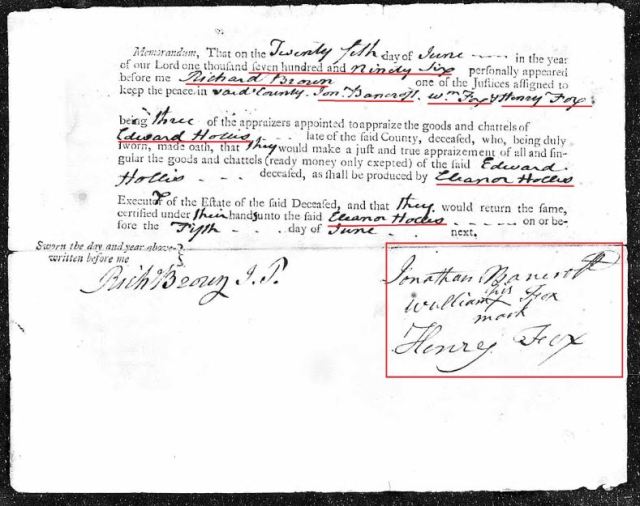 Memorandum, That on the Twenty fifth day of June in the year
of our Lord one thousand seven hundred and Nindy Six personally appeared
before me Richard Brown one of the Justices assigned to
keep the peace in said County. Jon. Bancroft. Wm Fox & Henry Fox
being three of the appraizers appointed to appraize the goods and chattels of
Edward Hollis late of the said County, deceased, who, being duly
sworn, made oath, that they would make a just and true appraizement of all and sin-
gular the goods and chattels (ready money only exepted) of the said Edward
Hollis deceased, as shall be produced by Eleanor Hollis
Execut of the Estate of the said Deceased, and that they would return the same,
certified under their hands unto the said Eleanor Hollis on or be-
fore the Fifth day of June next.
Sworn the day and year above-
written before me
Richd Brown J. P.
Jonathan Bancroft
William X Fox
his
mark
Henry Fox